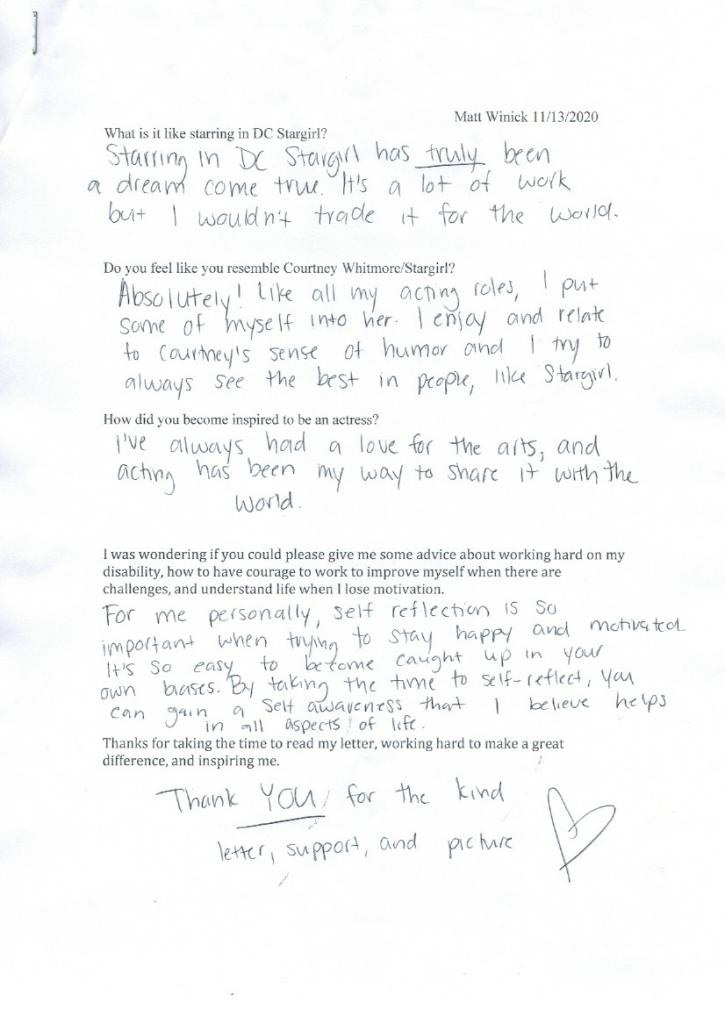 Matt Winick 11/13/2020
What is it like starring in DC Stargirl?
Starring in DC Stargirl has truly been
a dream come true. It's a lot of work
but I wouldn't trade it for the world.
Do you feel like you resemble Courtney Whitmore/Stargirl?
Absolutely! Like all my acting roles, I put
some of myself into her. I enjoy and relate
to Courtney's sense of humor and I try to
always see the best in people, like Stargirl.
How did you become inspired to be an actress?
I've always had a love for the arts, and
acting has been my way to share it with the
world.
I was wondering if you could please give me some advice about working hard on my
disability, how to have courage to work to improve myself when there are
challenges, and understand life when I lose motivation.
For me personally, self reflection is so
important when trying to stay happy and motivated
It's so easy to become caught up in your
own biases. By taking the time to self-reflect, you
can gain a self awareness that I believe helps
in all aspects of life.
Thanks for taking the time to read my letter, working hard to make a great
difference, and inspiring me.
Thank YOU for the kind
letter, support, and picture